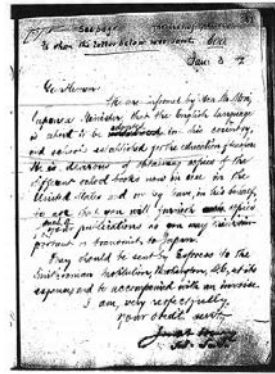 See page
to whom the letter below was sent
Jany 3
Gentlemen
We are informed by Mr. Mori,
Japanese Minister, that the English language
is about to be adopted in his country,
and schools established for the education
He is desirous of obtaining copies of the
different school books now in use in the
United States and on his behalf,
to ask that you will furnish copies
of your publications as you may deem
portant to transmit to Japan.
They should be sent by Express to the
Smithsonian Institution, Washington, D.C., at its
expense, and be accompanied with an invoice.
I am, very respectfully,
your obedt servt
Joseph Henry